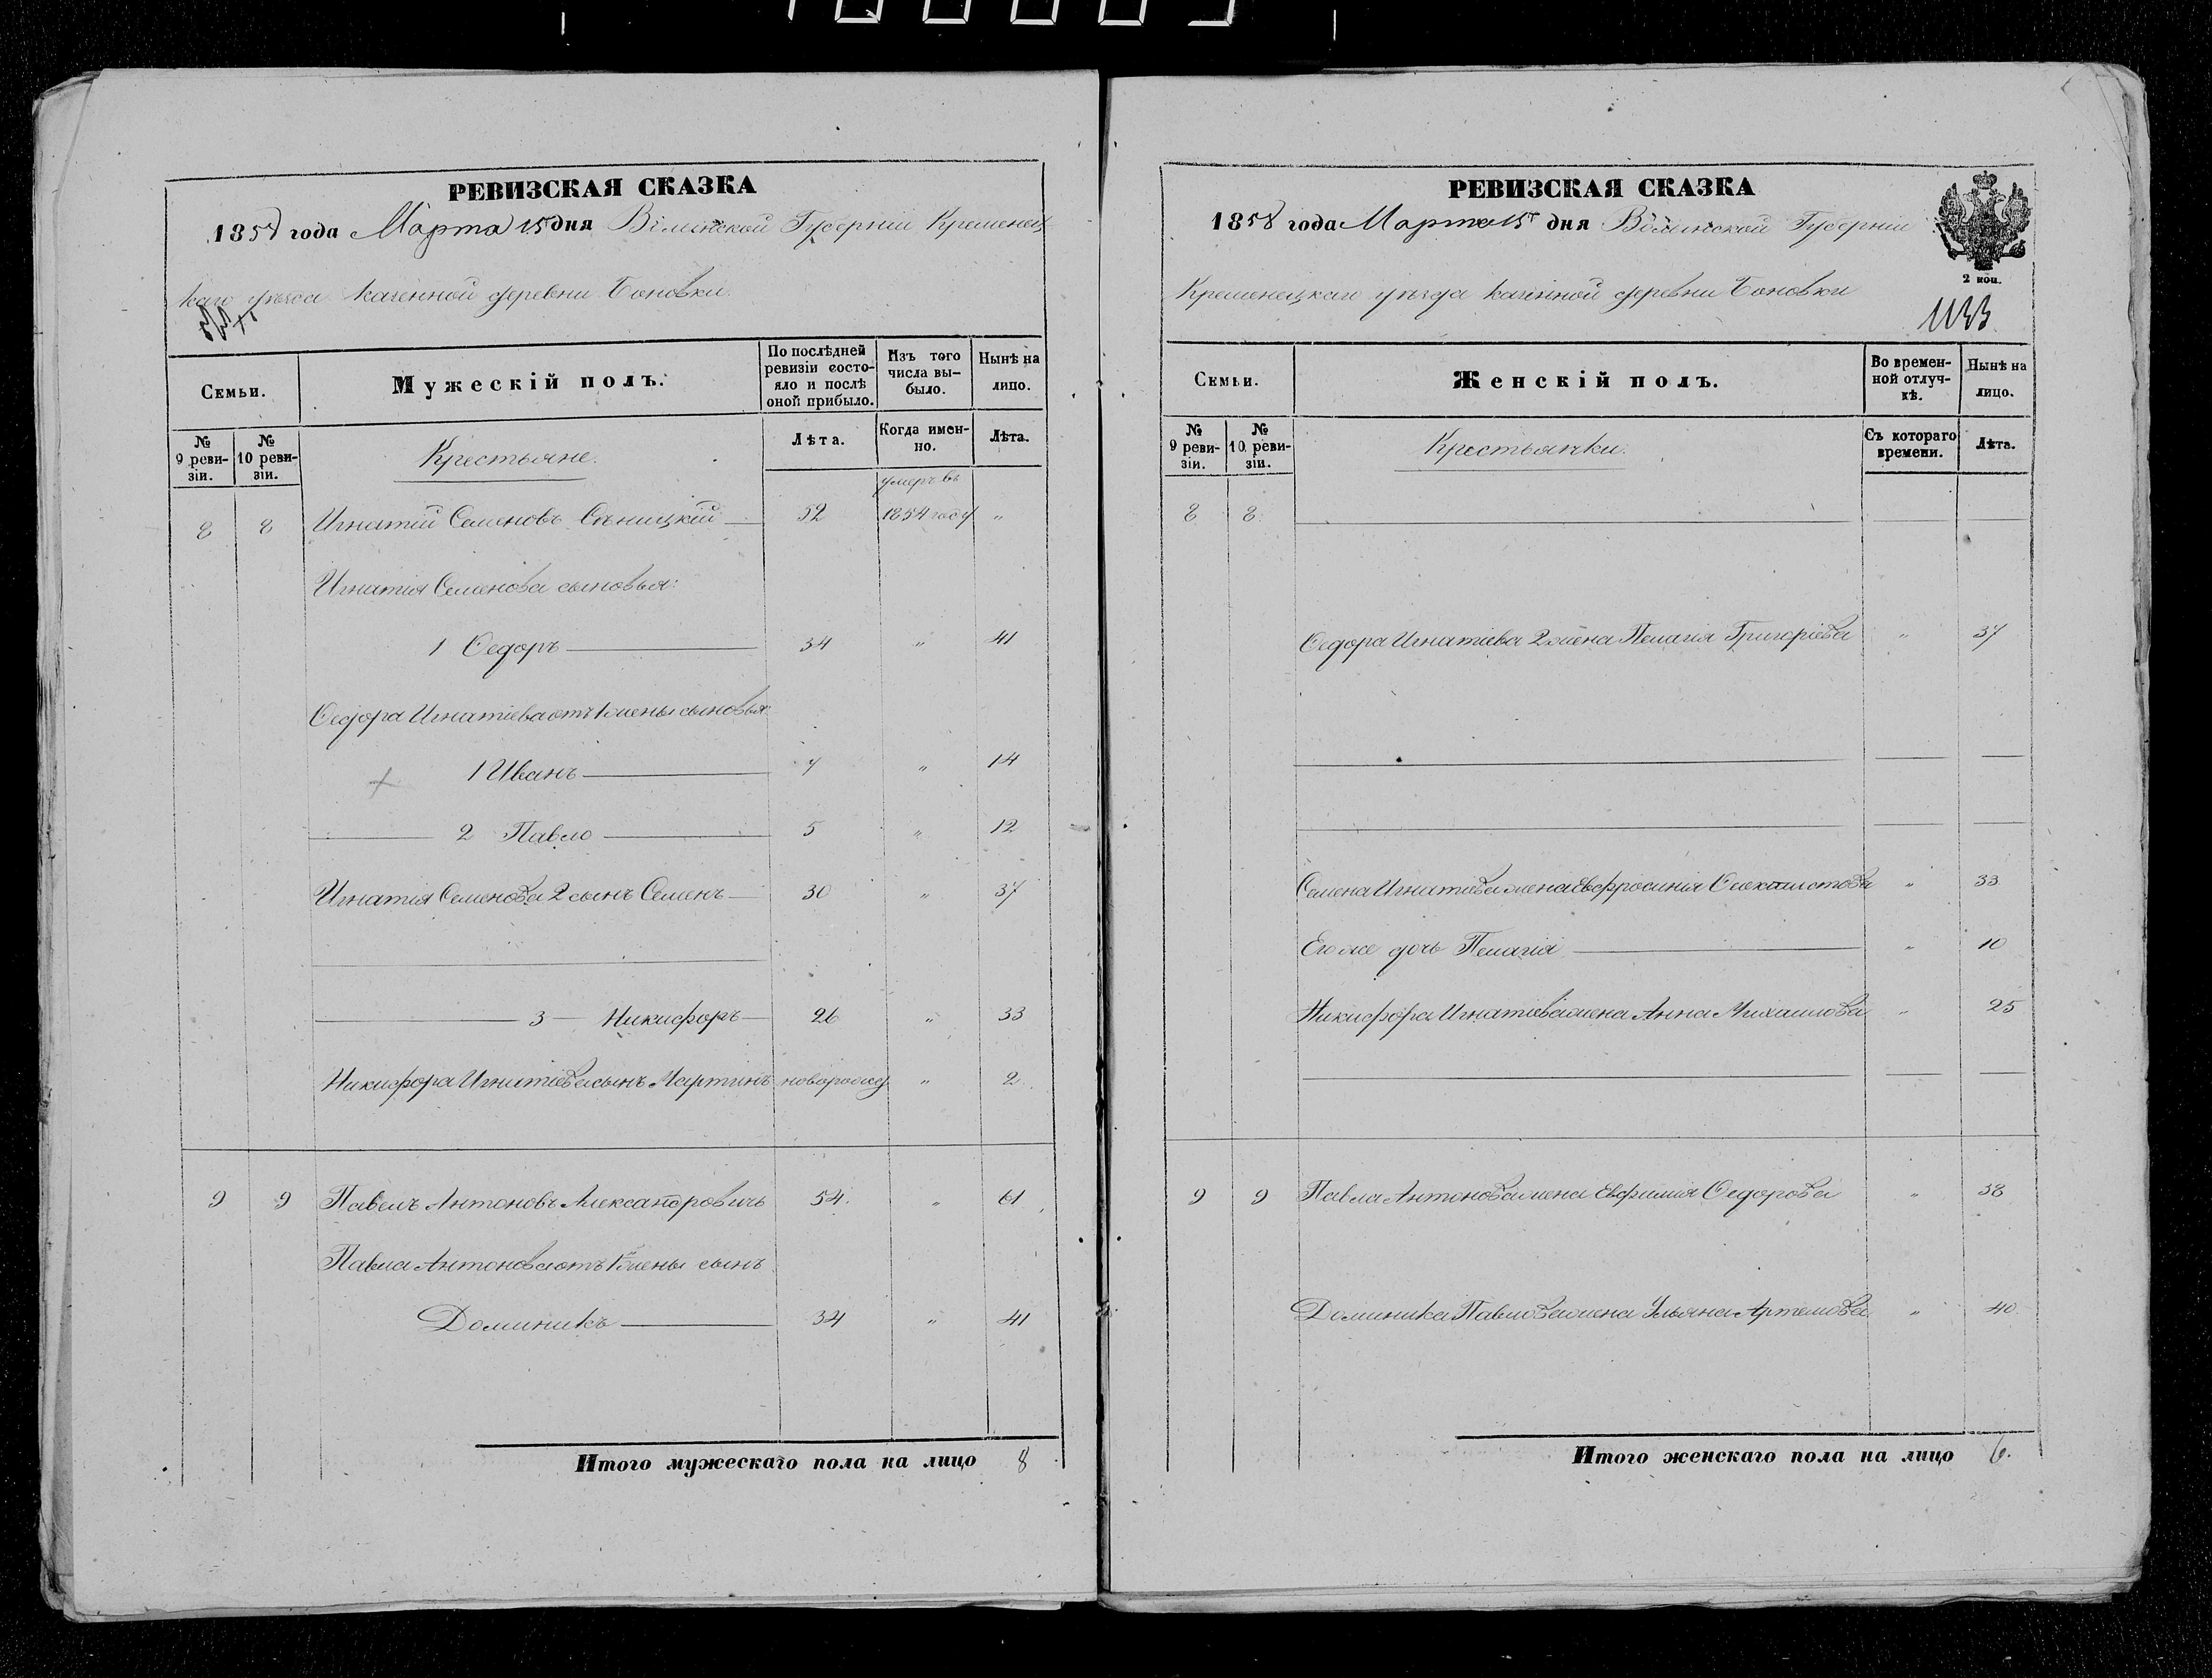 РЕВИЗСКАЯ СКАЗКА
1858 года Марта 15 дня Волынской Губерніи Кременец-
каго уѣзда казенной деревни Боновки
Семьи.
Мужескій полъ.
По послѣдней ревизіи состо-яло и послѣ оной прибыло.
Изъ того числа вы-было.
Нынѣ на лицо.
№ 9 реви-зіи.
№ 10 реви-зіи.
Крестьяне.
Лѣта.
Когда имен-но.
Лѣта.
умеръ въ
8 8 Игнатій Семеновъ Сѣницкій 52 1854 году "
Игнатія Семенова сыновья:
1 Ѳедоръ 34 " 41
Ѳедора Игнатіева отъ 1 жены сыновья
1 Иванъ 7 " 14
2 Павло 5 " 12
Игнатія Семенова 2 сынъ Семенъ 30 " 37
3 Никифоръ 26 " 33
Никифора Игнатіева сынъ Мартинъ новорожд " 2
9 9 Павелъ Антоновъ Александровичъ 54. " 61
Павла Антонова отъ 1й жены сынъ
Доминикъ 34 " 41
Итого мужескаго пола на лицо 8
РЕВИЗСКАЯ СКАЗКА
1858 года Марта 15 дня Волынской Губерніи
Кременецкаго уѣзда казенной деревни Боновки
2 коп.
1133
Семьи.
Женскій полъ.
Во времен-ной отлуч-кѣ.
Нынѣ на лицо.
№ 9 реви-зіи.
№ 10 реви-зіи.
Крестьянки.
Съ котораго времени.
Лѣта.
8 8
Ѳедора Игнатіева 2 жена Пелагія Григоріева " 37
Семена Игнатіева жена Евфросинія Ѳеоктистова " 33
Его же дочь Пелагія " 10
Никифора Игнатіева жена Анна Михайлова " 25
9 9 Павла Антонова жена Евфимія Ѳедорова " 38
Доминика Павлова жена Ульяна Артемова " 40
Итого женскаго пола на лицо 6.